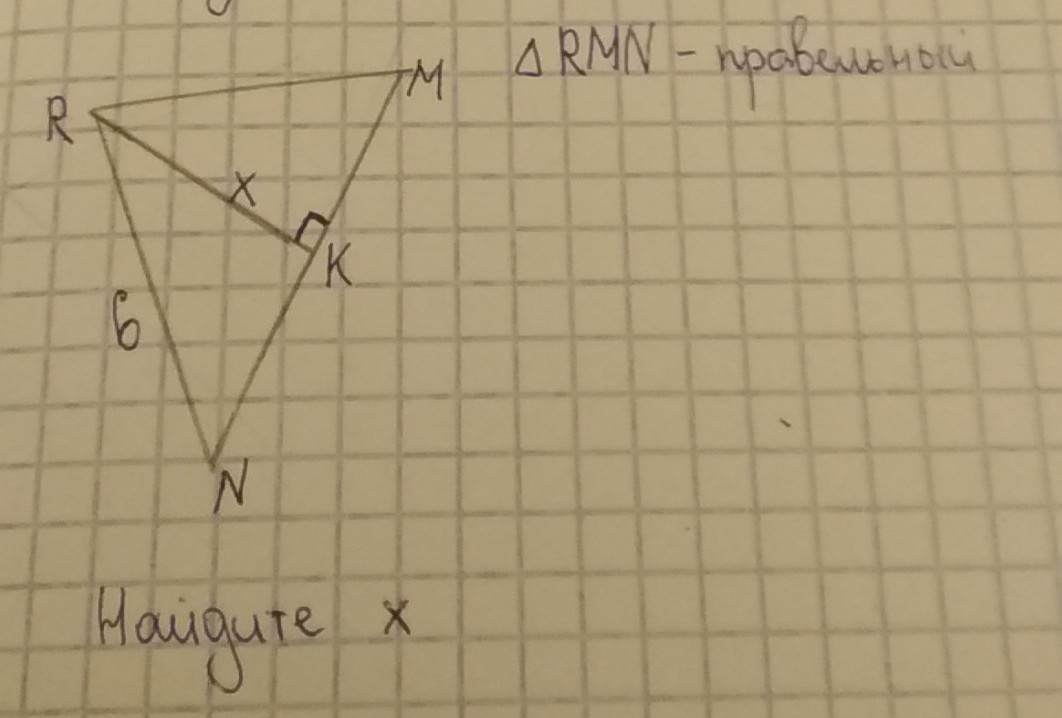 △ RMN - правельный
M
R
x
K
6
N
Найдите x